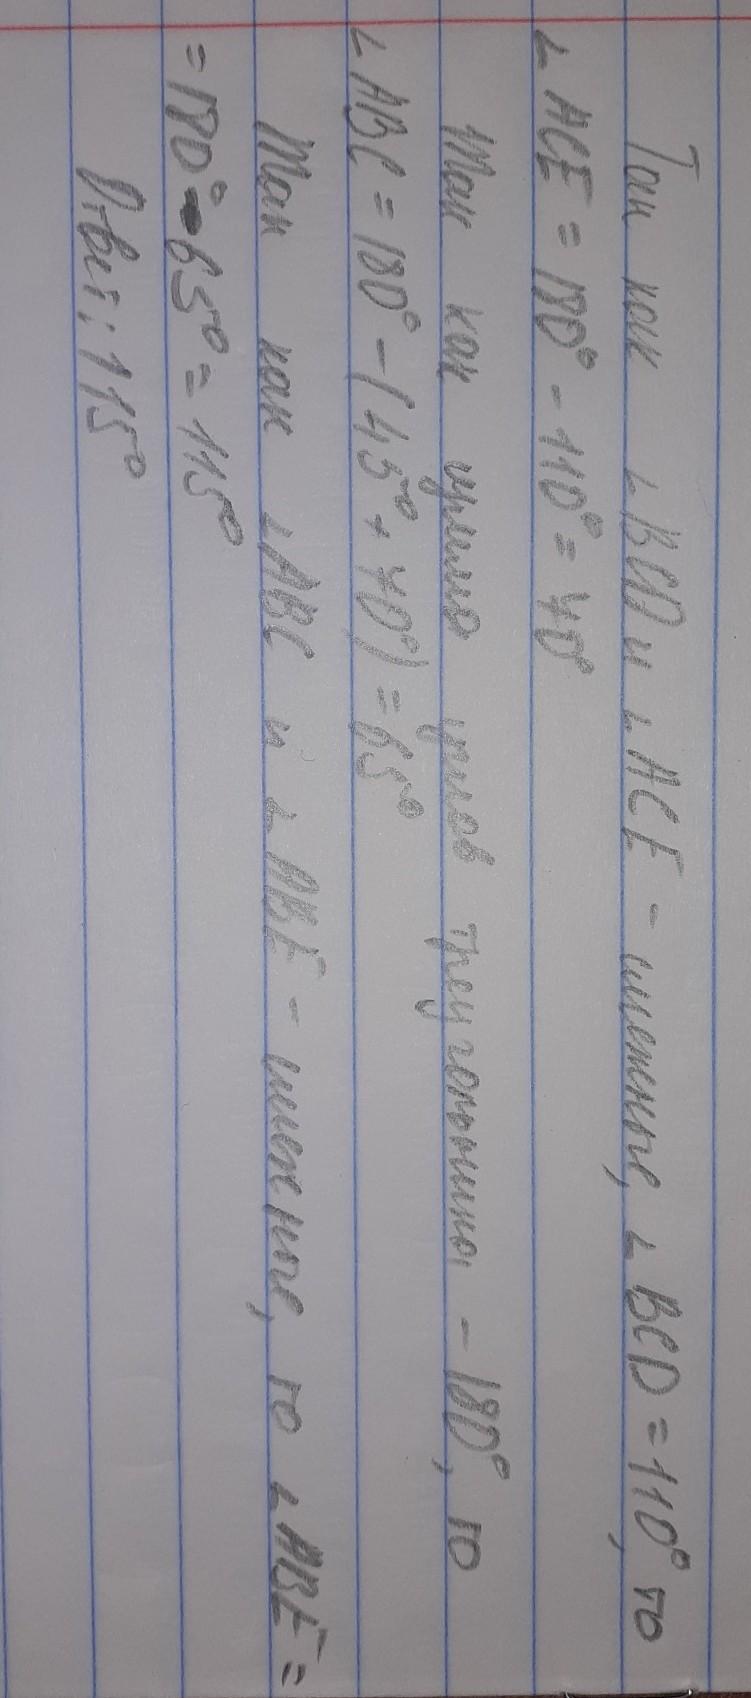 Так как ∠BCD и ∠ACE - смежные, ∠BCD = 110°, то
∠ACE = 180° - 110° = 70°
Так как сумма углов треугольника - 180°, то
∠ABC = 180° - (45° + 70°) = 65°
Так как ∠ABC и ∠ABE - смежные, то ∠ABE =
= 180° - 65° = 115°
Ответ: 115°